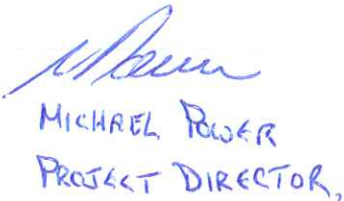 MICHAEL POWER
PROJECT DIRECTOR,